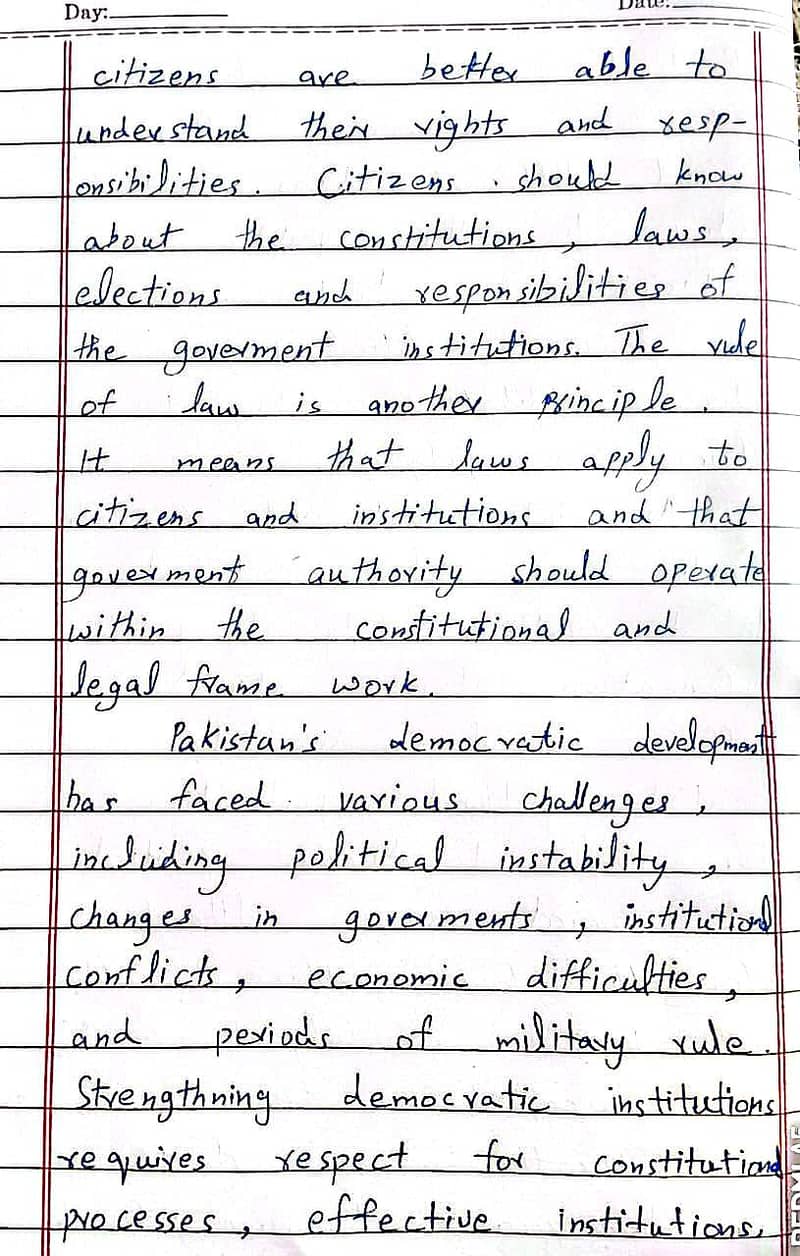 Day:
Date:
citizens are better able to
understand their rights and resp-
onsibilities. Citizens should know
about the constitutions, laws,
elections and responsibilities of
the goverment institutions. The rule
of law is another principle.
It means that laws apply to
citizens and institutions and that
goverment authority should operate
within the constitutional and
legal frame work.
Pakistan's democratic development
has faced various challenges,
including political instability,
changes in goverments, institutional
conflicts, economic difficulties,
and periods of military rule.
Strengthning democratic institutions
requires respect for constitutional
processes, effective institutions,